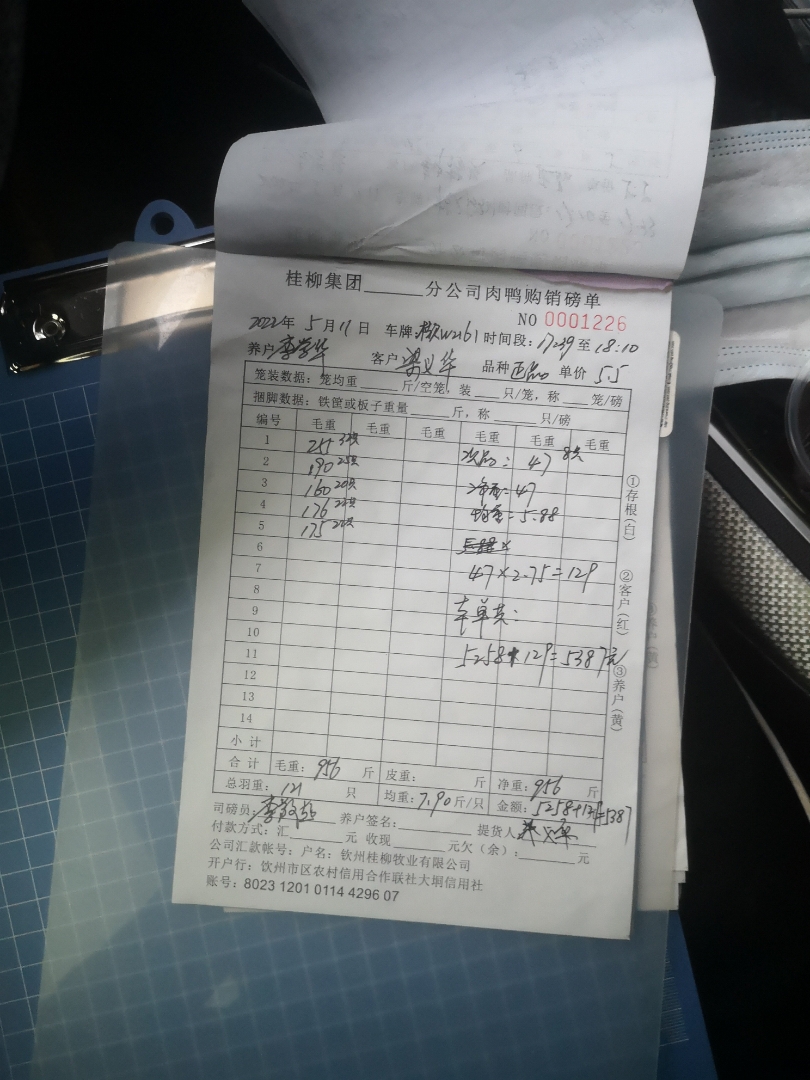 桂柳集团______分公司肉鸭购销磅单
NO 0001226
2022年 5月11日 车牌: W2161 时间段: 17:39 至 18:10
养户 客户 梁义华 品种 正品 单价 5.5
笼装数据: 笼均重____斤/空笼, 装___只/笼, 称___笼/磅
捆脚数据: 铁筐或板子重量____斤, 称____只/磅
编号 毛重 毛重 毛重 毛重 毛重 毛重
1 255 32只
2 190 25只 次品: 47 8只
3 160 20只 净重=47
4 176 22只 均重=5.88
5 175 22只
6
7 47×2.75=129
8
9 本单共:
10
11 5258+129=5387元
12
13
14
小计
合计 毛重: 956 斤 皮重: 斤 净重: 956 斤
总羽重: 121 只 均重: 7.90 斤/只 金额: 5258+129=5387
①存根(白)
②客户(红)
③养户(黄)
司磅员: 养户签名: 提货人
付款方式: 汇______元 收现______元欠(余): ______元
公司汇款帐号: 户名: 钦州桂柳牧业有限公司
开户行: 钦州市区农村信用合作联社大垌信用社
账号: 8023 1201 0114 4296 07